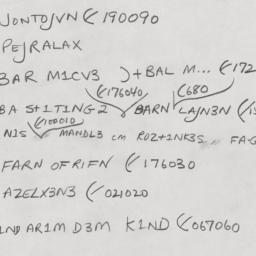 JONTOJVN ( 190090
PEJRALAX
BAR M1CV3 )+BAL M... (172
(176040 (680
BA S+1T1NG2 BARN LAJN3N (15
(100010
N1S MANDL3 cm ROZ+1NK3S FA-G
FARN OFRIFN (176030
AZELX3N3 (021020
IND AR1M D3M K1ND (067060